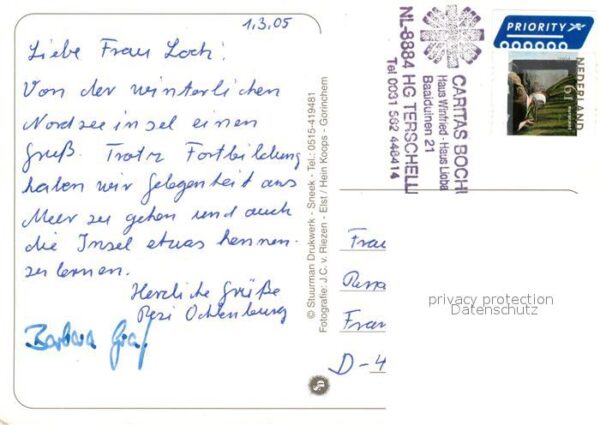 1.3.05
Liebe Frau Loch!
Von der winterlichen
Nordseeinsel einen
Gruß. Trotz Fortbildung
haben wir Gelegenheit ans
Meer zu gehen und auch
die Insel etwas kennen-
zulernen.
Herzliche Grüße
Resi Ochtenburg
Barbara Graf
© Stuurman Drukwerk - Sneek - Tel.: 0515-419481
Fotografie: J.C. v. Riezen - Elst / Hein Koops - Gorinchem
CARITAS BOCH
Haus Winfried - Haus Lioba
Baaiduinen 21
NL-8884 HG TERSCHELL
Tel 0031 562 448414
PRIORITY
NEDERLAND
61
Frau
Fran
D-4
privacy protection
Datenschutz